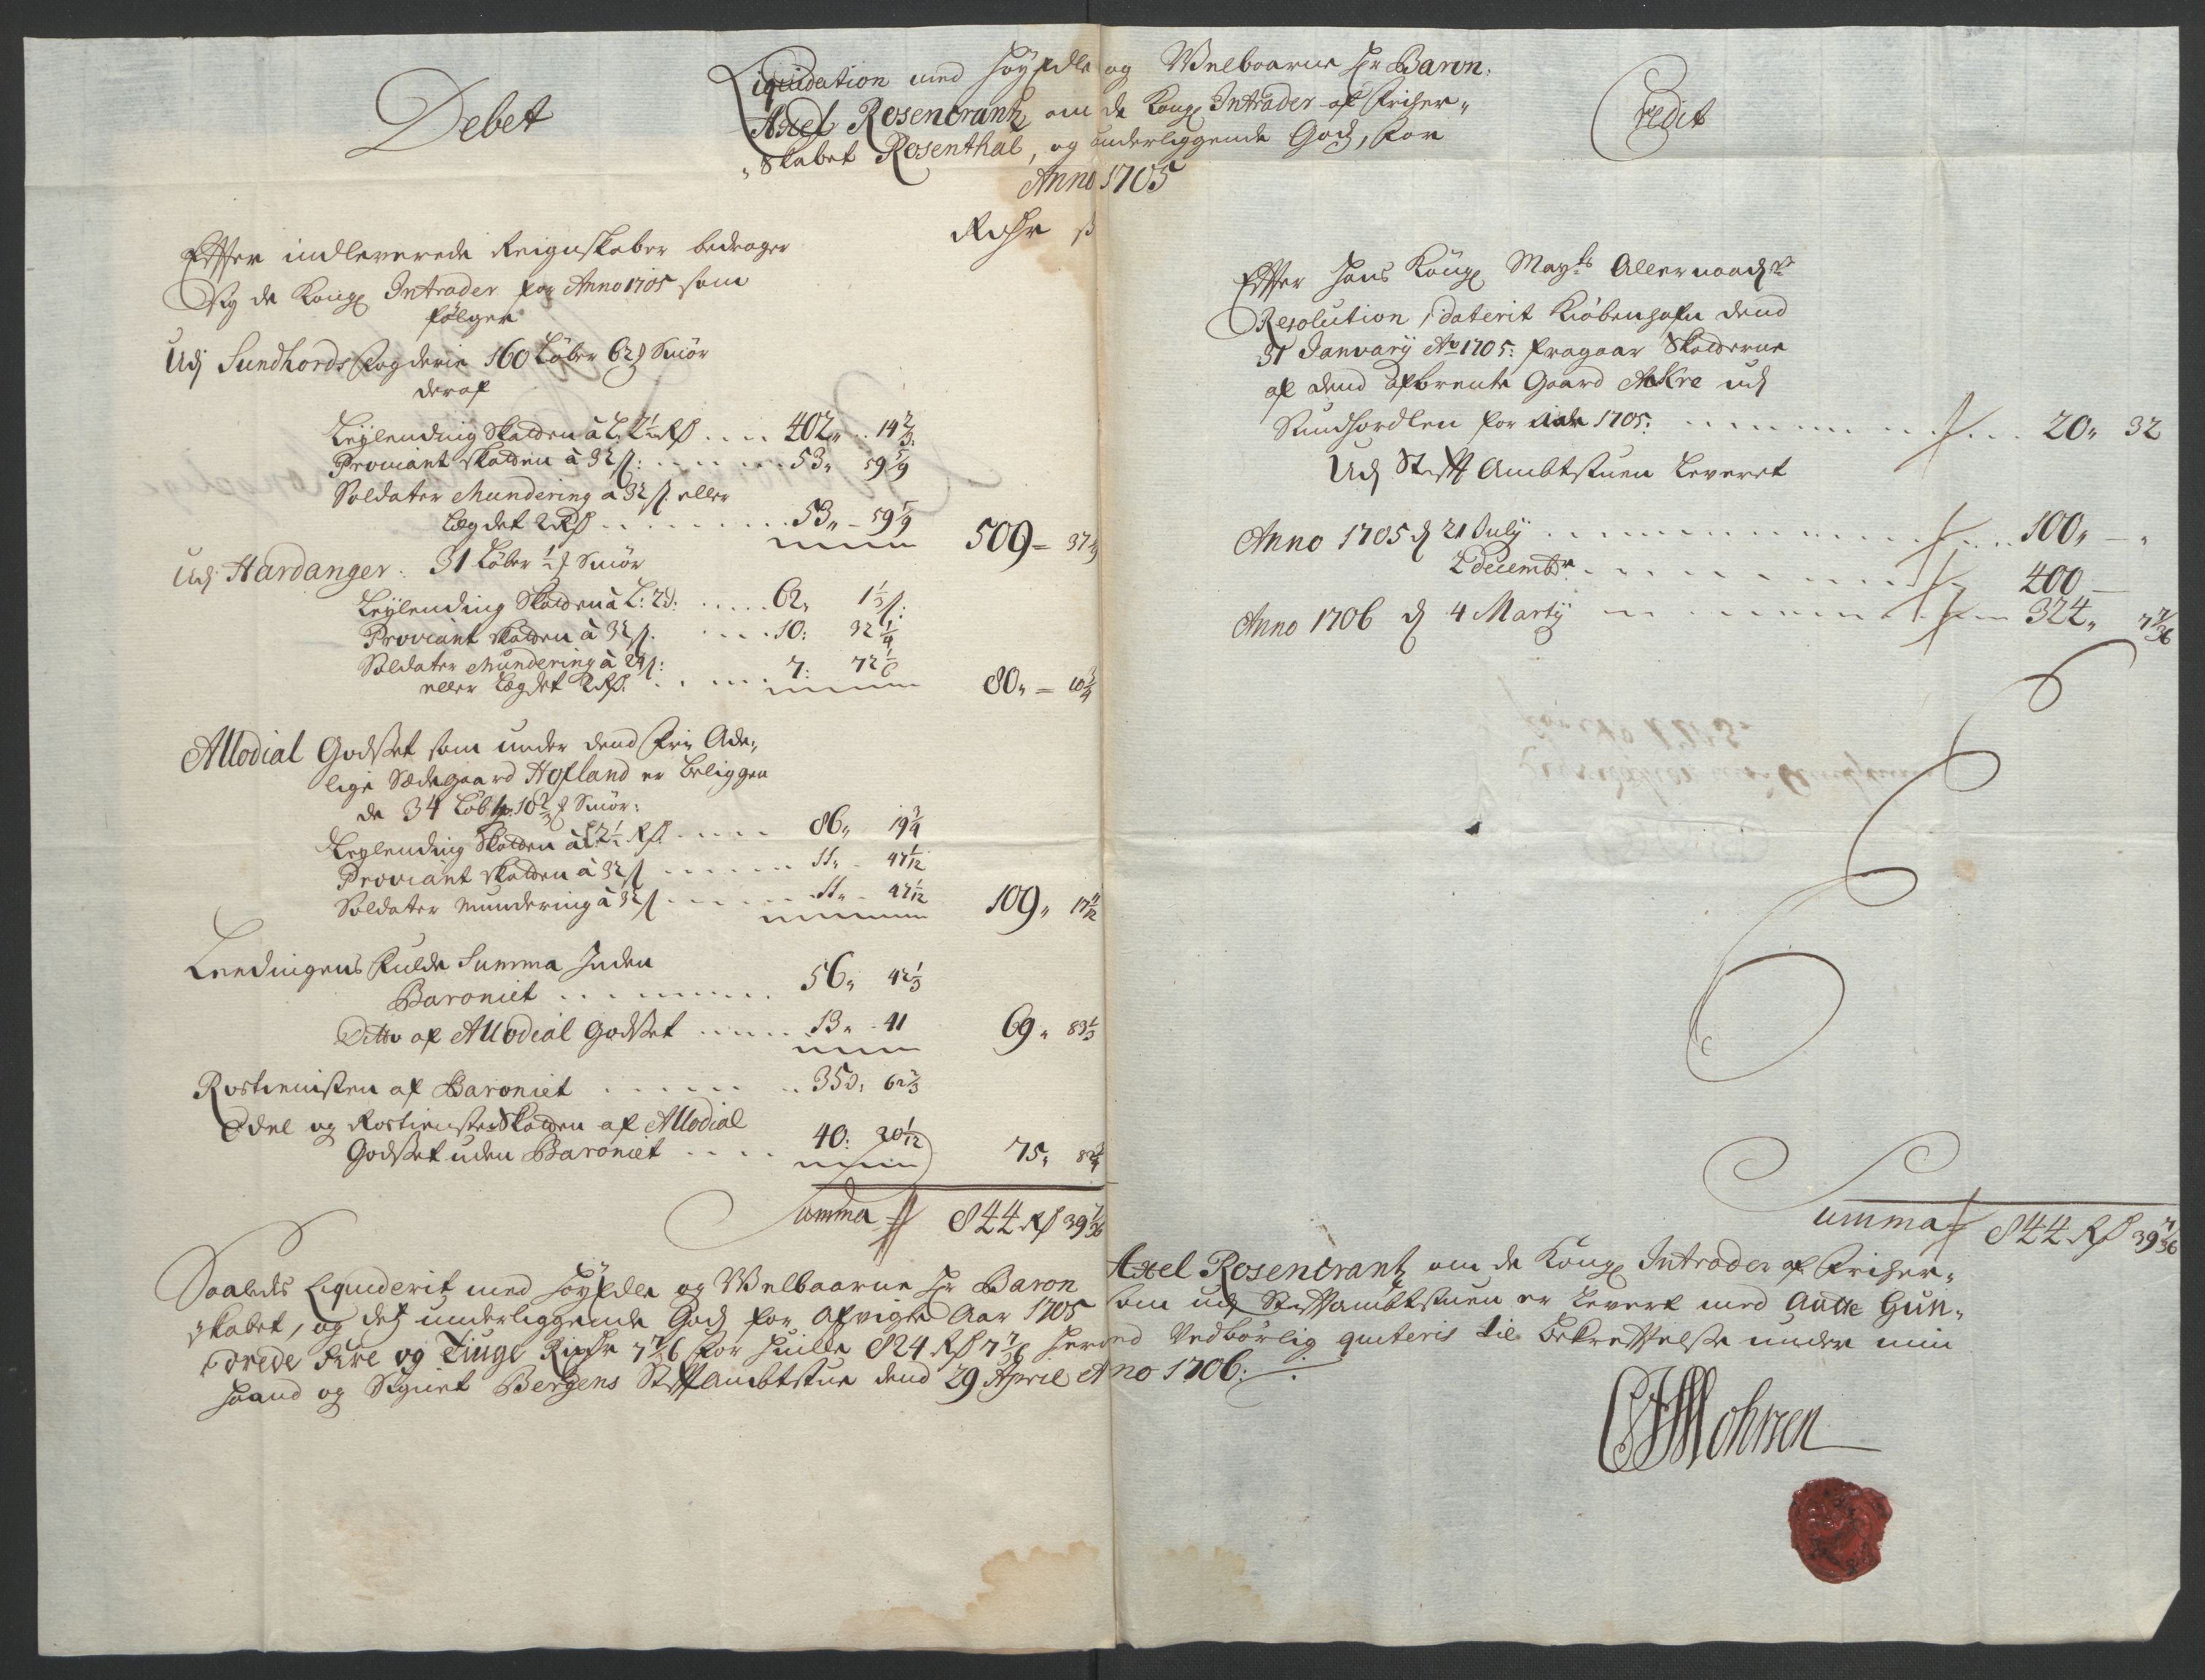 Debet
Liquidation med Høyædle og Welbaarne Hr Baron
Axel Rosencrantz om de Kongl Intrader af Friher-
skabet Rosenthal, og underliggende Godz, for
Anno 1705
Credit
Rixdr ß
Effter indleverede Reignskaber bedrager
Sig de Kongl Intrader for Anno 1705 som
følger
Udj Sundhords Fogderie 160 Løber 6 2/3 Smør
deraf
Leylending Skatten à L. 2 1/2 Rd .... 402„ 14 2/3
Proviant Skatten à 32 ß: .... 53„ 59 5/9
Soldater Mundering a 32 ß eller
Lægdet 2 Rd .... 53„ 59 5/9 509 = 37 7/9
Udj Hardanger: 31 Løber 1/2 Smør
Leylending Skatten à L: 2 d: .... 62„ 1 1/3 ß:
Proviant Skatten à 32 ß. .... 10: 32 1/4
Soldater Mundering à 24 ß:
eller Legdet 2 Rd: .... 7: 72 1/6 80„ = 10 3/4
Allodial Godset som under dend frie Ade„
lige Sædegaard Hofland er beliggen
de 34 Løb 1 p 10 2/3 Smør:
Leylending Skatten à L 2 1/2 Rd .... 86„ 19 3/4
Proviant Skatten à 32 ß .... 11„ 47 1/12
Soldater Mundering à 32 ß .... 11„ 47 1/12 109„ 17 11/12
Leedingens fulde Summa Inden
Baroniet .... 56„ 42 1/3
Ditto af Allodial Godset .... 13„ 41 69„ 83 1/3
Rostienisten af Baroniet .... 35: 62 2/3
Odel og Rostienste Skatten af Allodial
Godset uden Baroniet .... 40: 20 1/12 75„ 82 3/4
Summa 844 Rd 39 7/36
Effter Hans Kongl Mayts Allernaadigst
Resolution, daterit Kiøbenhafn dend
31 January Ao 1705: fragaar Skatterne
af dend afbrente Gaard Akre udj
Sundhordlen for 1705: .... 20„ 32
Udj Stifft Ambtstuen Leveret
Anno 1705 d 21 July .... 100„ — „
2 decembr .... 400 —
Anno 1706 d 4 Marty .... 324„ 7 7/36
Summa 844 Rd 39 7/36
Saaledes Liquiderit med Høyædle og Welbaarne Hr Baron Axel Rosencrantz om de Kongl Intrader af Friher„
skabet, og dets underliggende Godz for afvigte Aar 1705 som udj Stifftambtstuen er Levert med Aatte Hun„
drede fire og Tiuge Rixdr 7 7/36 for huilke 824 Rd 7 7/36 herved Vedbørlig quiteris til Bekrefftelse under min
haand og Signet Bergens Stifftambtstue dend 29 April Anno 1706: